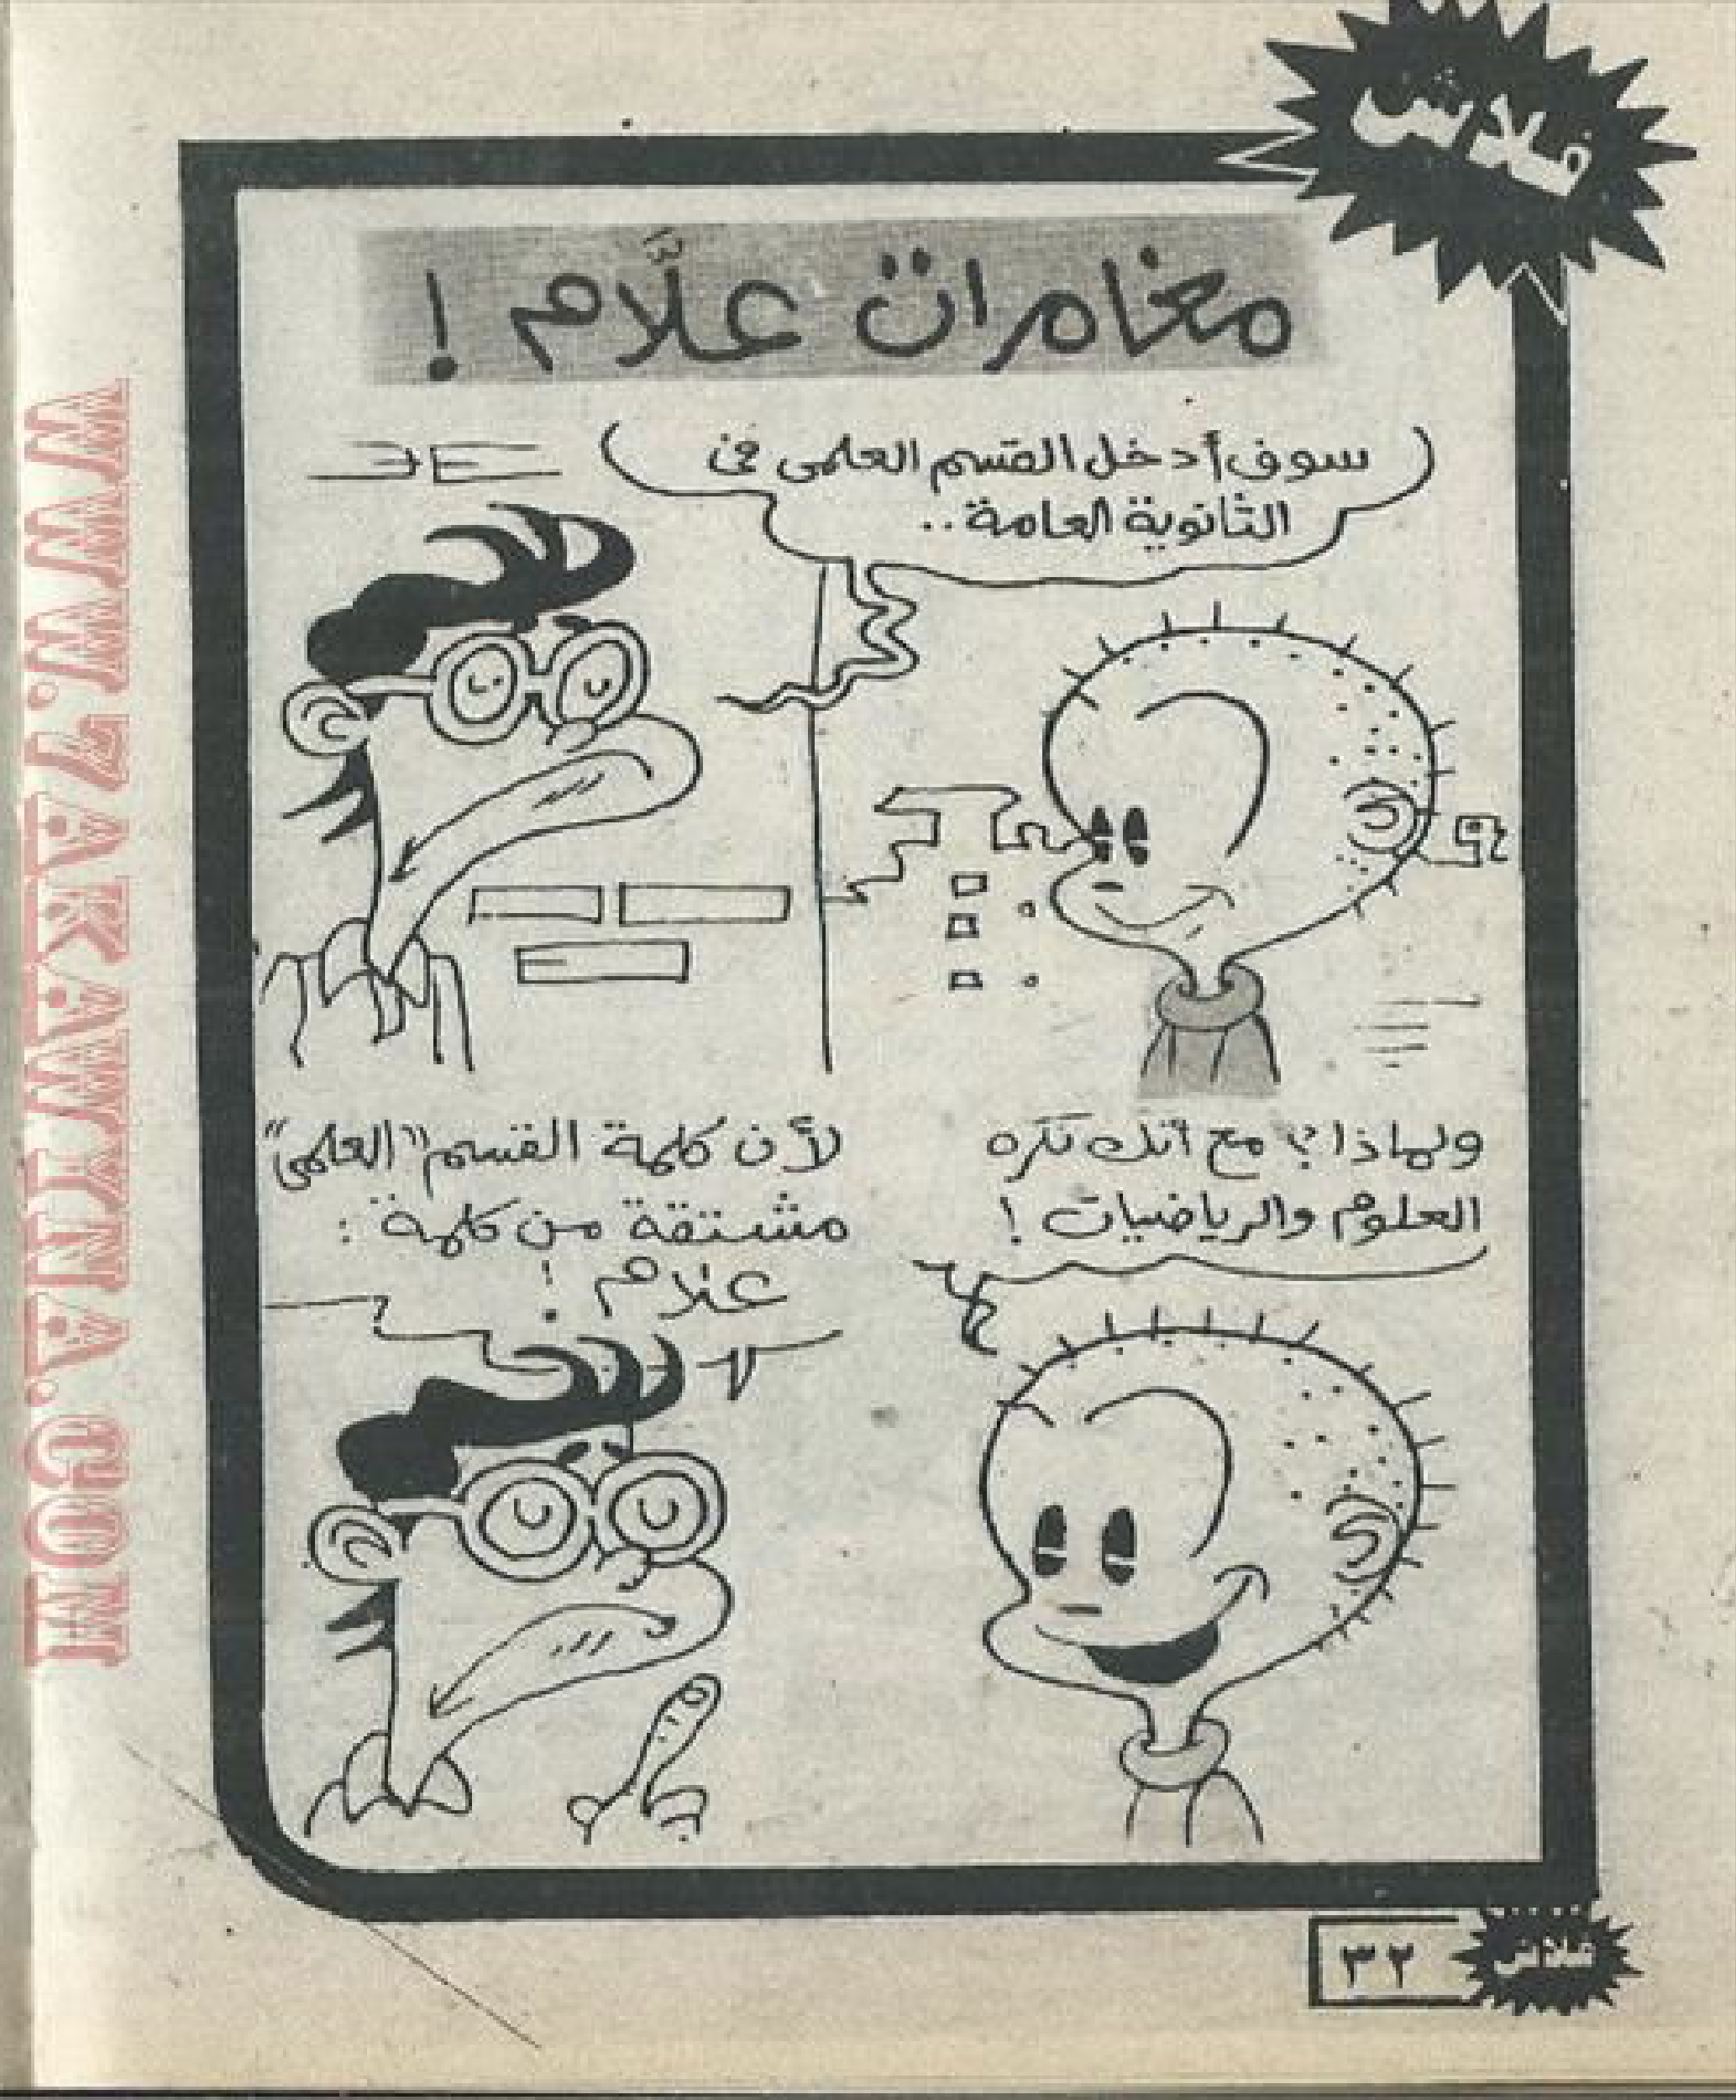 فلاش
مغامرات علَّام !
سوف أدخل القسم العلمى فى
الثانوية العامة..
ولماذا؟ مع أنك تكره
العلوم والرياضيات !
لأن كلمة القسم "العلمى"
مشتقة من كلمة :
علام !
فلاش
٣٢
WWW.7AKAWINA.COM